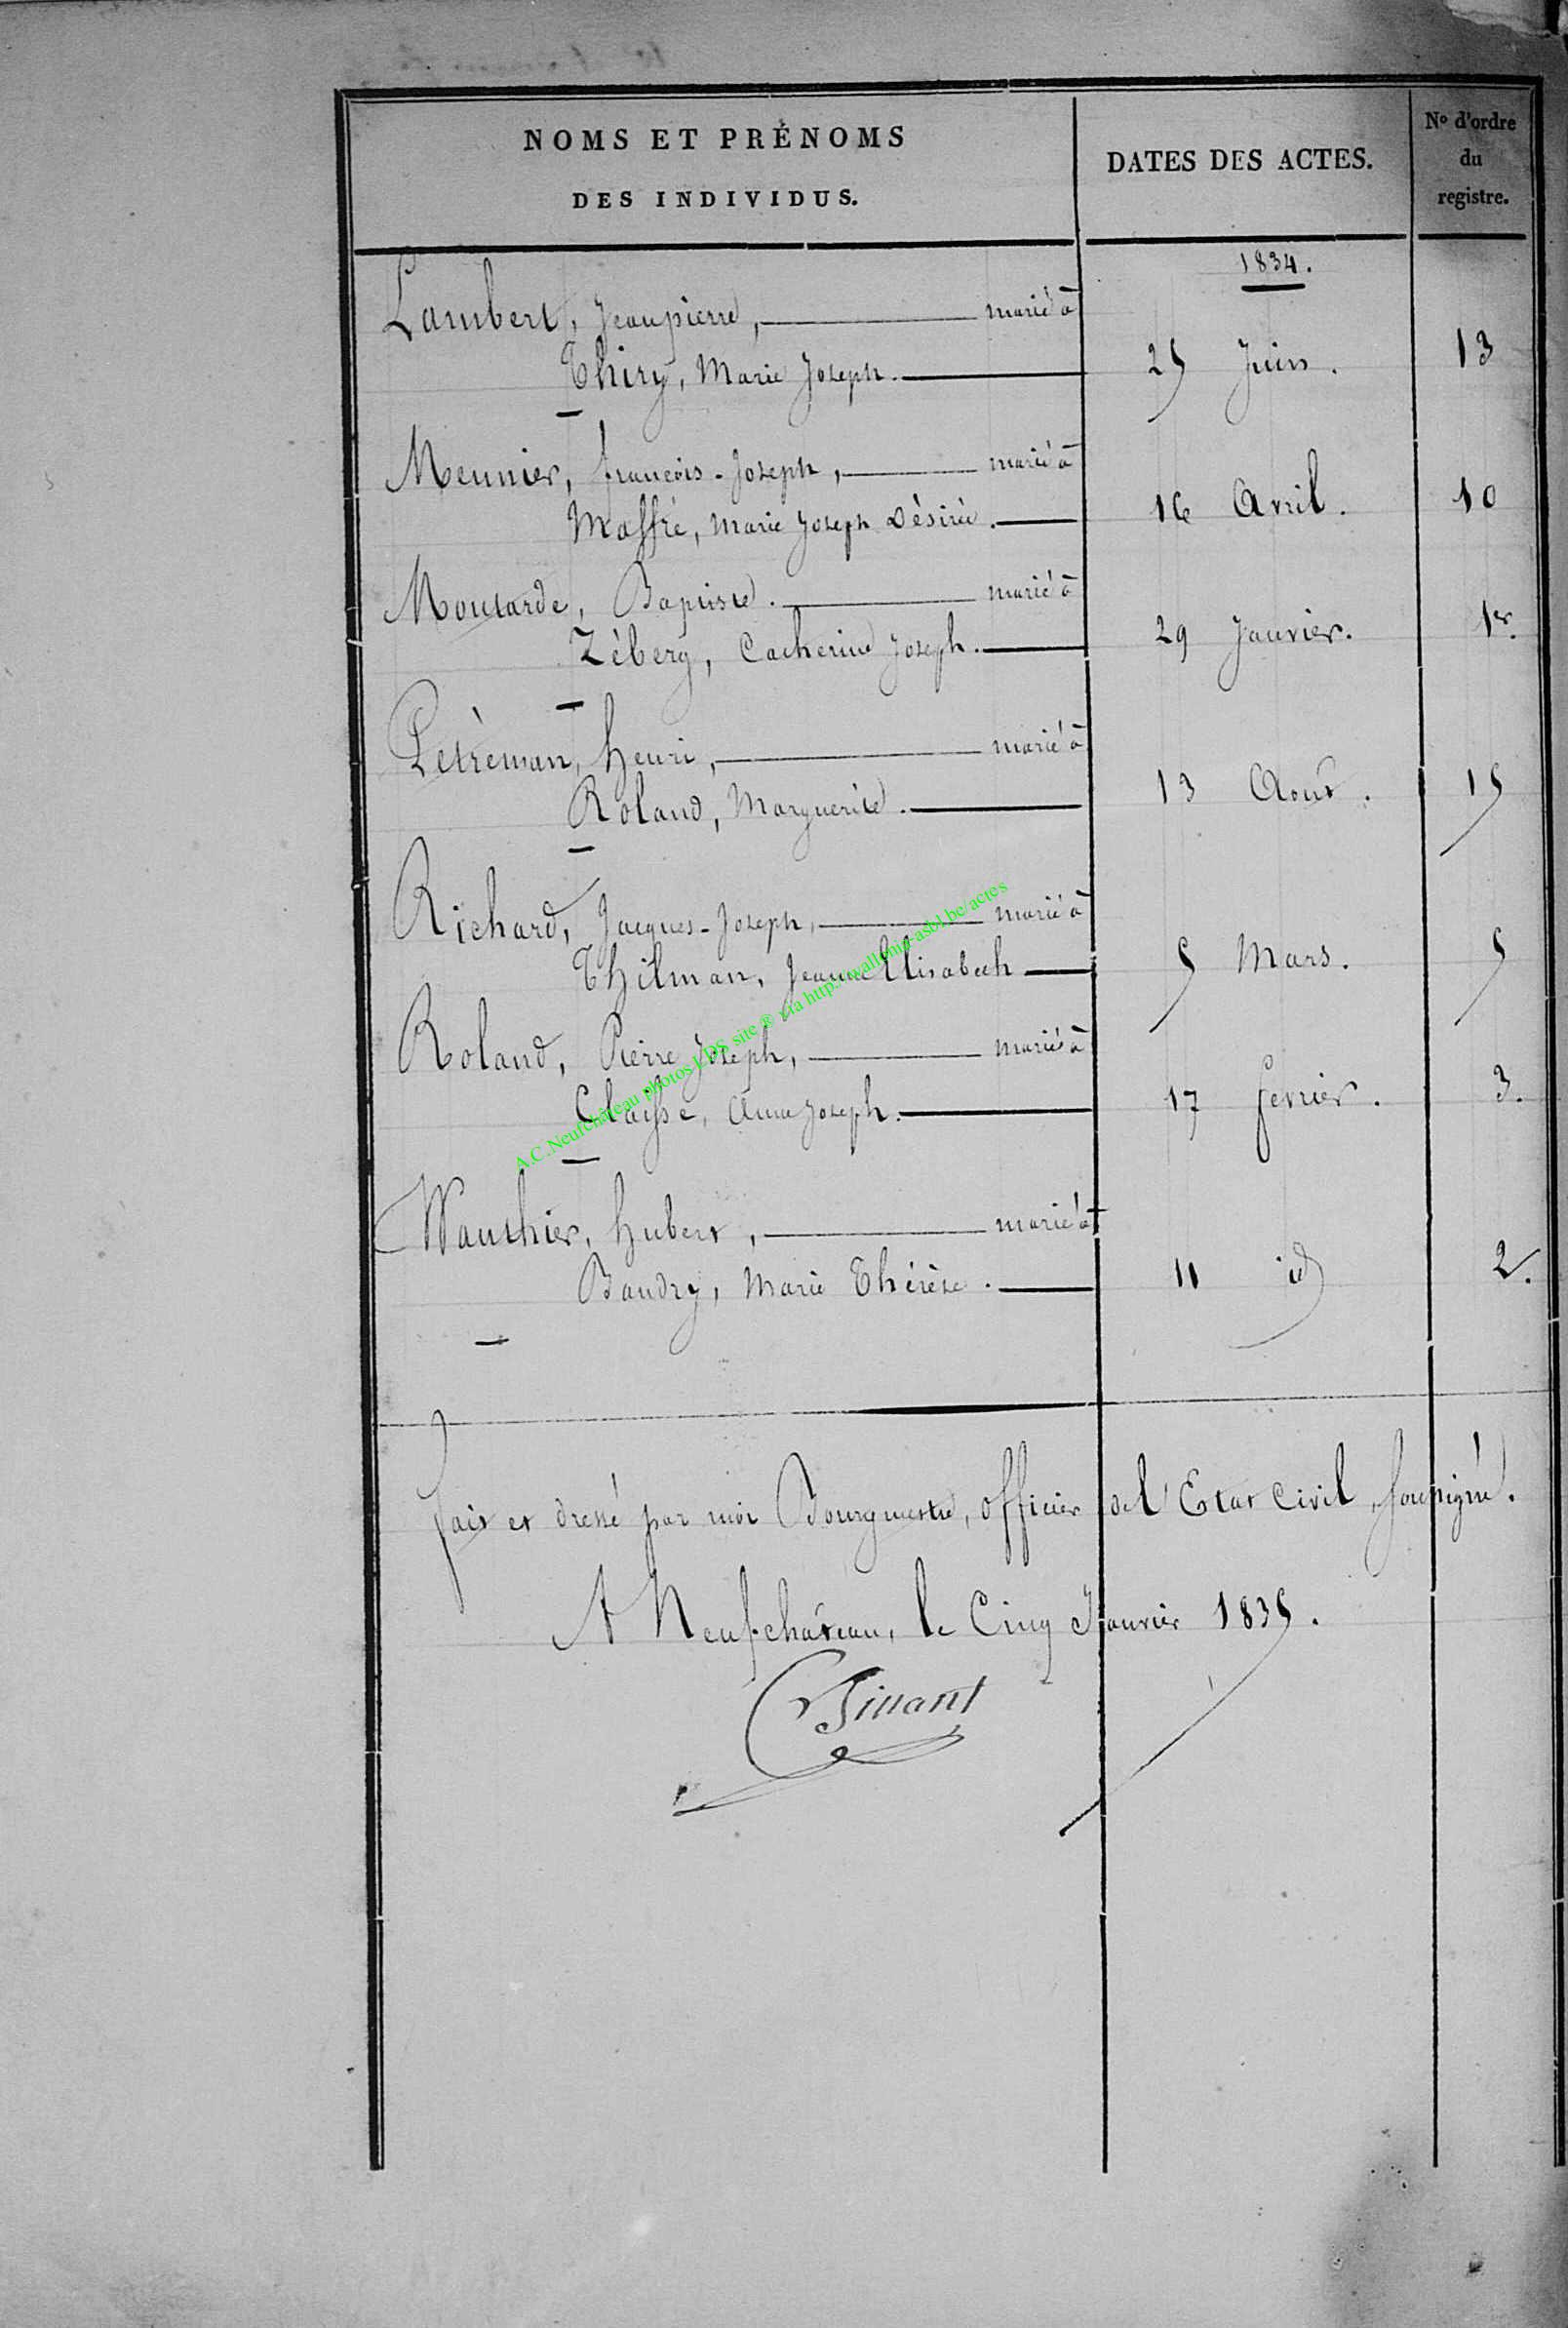 NOMS ET PRÉNOMS
DES INDIVIDUS.
DATES DES ACTES.
No d'ordre
du
registre.
1834.
Lambert, Jeanpierre, marié à
Thiry, Marie Joseph. 25 Juin. 13
Meunier, françois-Joseph, marié à
Maffré, Marie Joseph Désirée. 16 Avril. 10
Moutarde, Baptiste. marié à
Zébery, Catherine Joseph. 29 Janvier. 1er.
Petrèman, henri, marié à
Roland, Marguerite. 13 Aout. 15
Richard, Jacques-Joseph, marié à
Thilman, Jeanne Elisabeth 5 Mars. 5
Roland, Pierre Joseph, mariés à
Claisse, Anne Joseph. 17 fevrier. 3.
Wauthier, hubert, marié à
Baudry, Marie Thérèse. 11 id 2.
fait et dressé par moi Bourgmestre, officier del'Etat Civil, soussigné.
A Neufchâteau, le Cinq Janvier 1835.
A.C.Neufchâteau photos LDS site ® via http://wallonia-asbl.be/actes